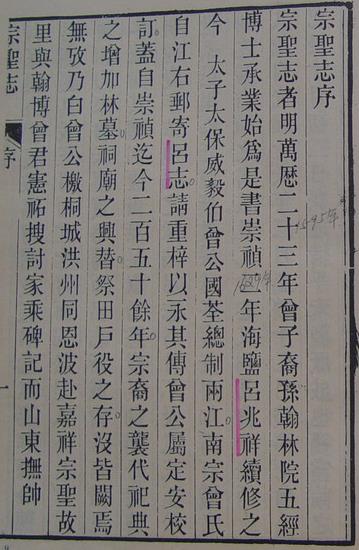 宗聖志序
宗聖志者明萬歷二十三年曾子裔孫翰林院五經
1595年
博士承業始爲是書崇禎 年海鹽呂兆祥續修之
1629年
今 太子太保威毅伯曾公國荃總制兩江南宗曾氏
自江右郵寄呂志請重梓以永其傳曾公屬定安校
訂蓋自崇禎迄今二百五十餘年宗裔之襲代祀典
之增加林墓祠廟之興替祭田戶役之存沒皆闕焉
無攷乃白曾公檄桐城洪州同恩波赴嘉祥宗聖故
里與翰博曾君憲祏搜討家乘碑記而山東撫帥
宗聖志 序 一